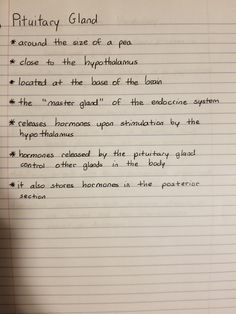 Pituitary Gland
* around the size of a pea
* close to the hypothalamus
* located at the base of the brain
* the "master gland" of the endocrine system
* releases hormones upon stimulation by the
hypothalamus
* hormones released by the pituitary gland
control other glands in the body
* it also stores hormones in the posterior
section